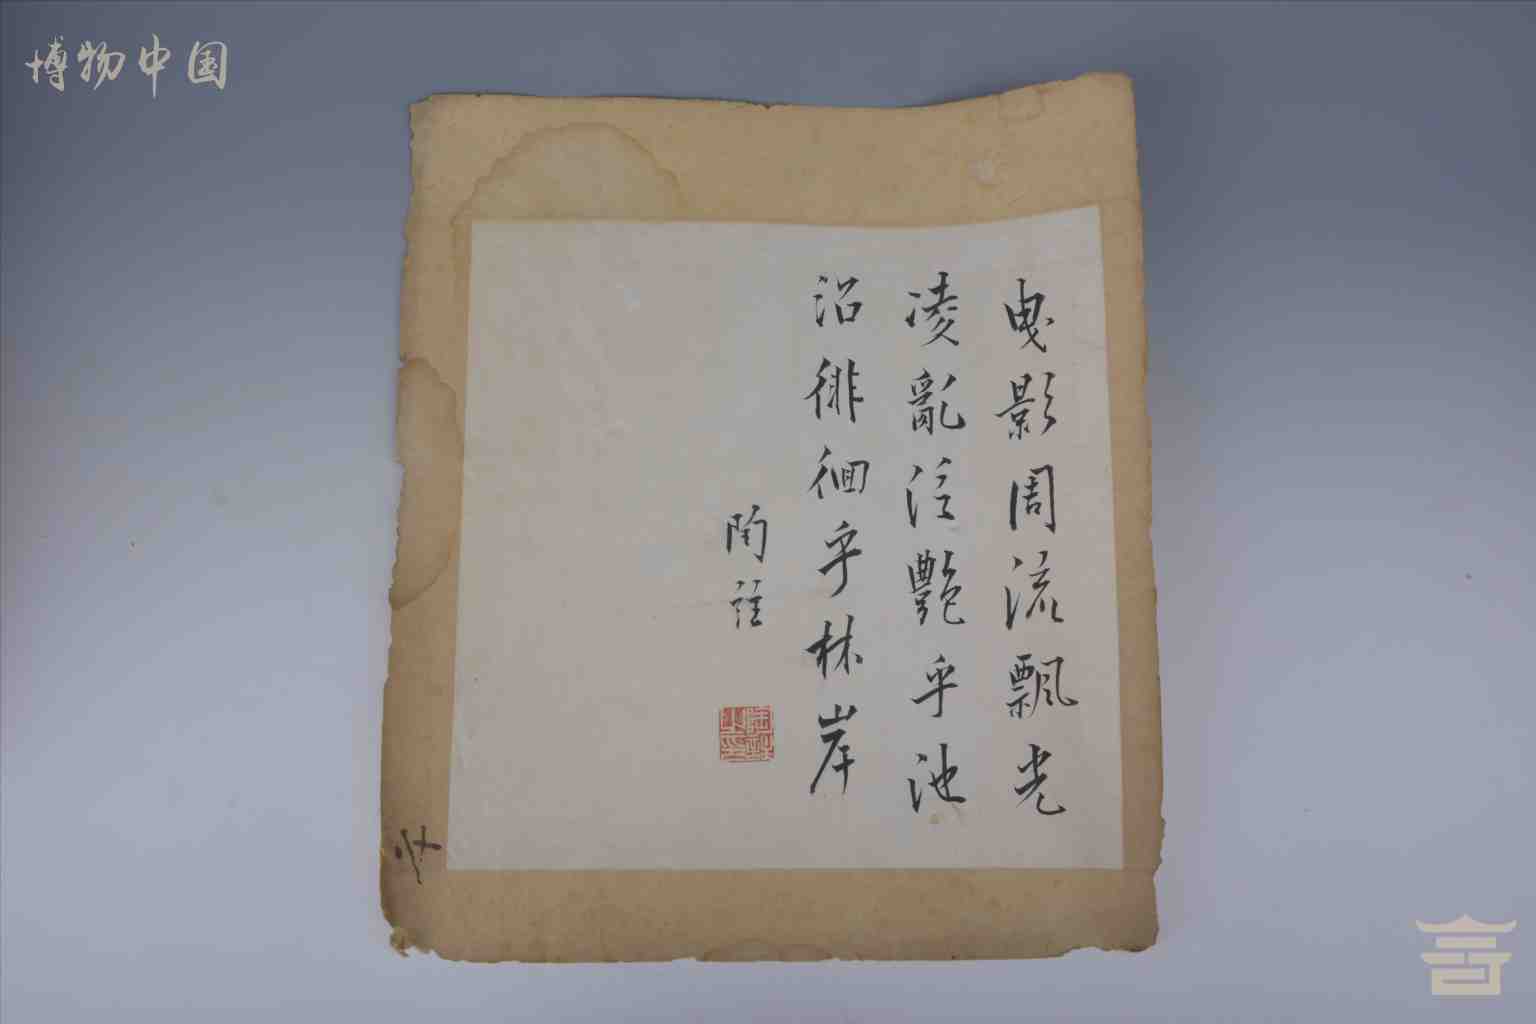 博物中国
曳影周流飄光
凌亂泛艷乎池
沼徘徊乎林岸
陶